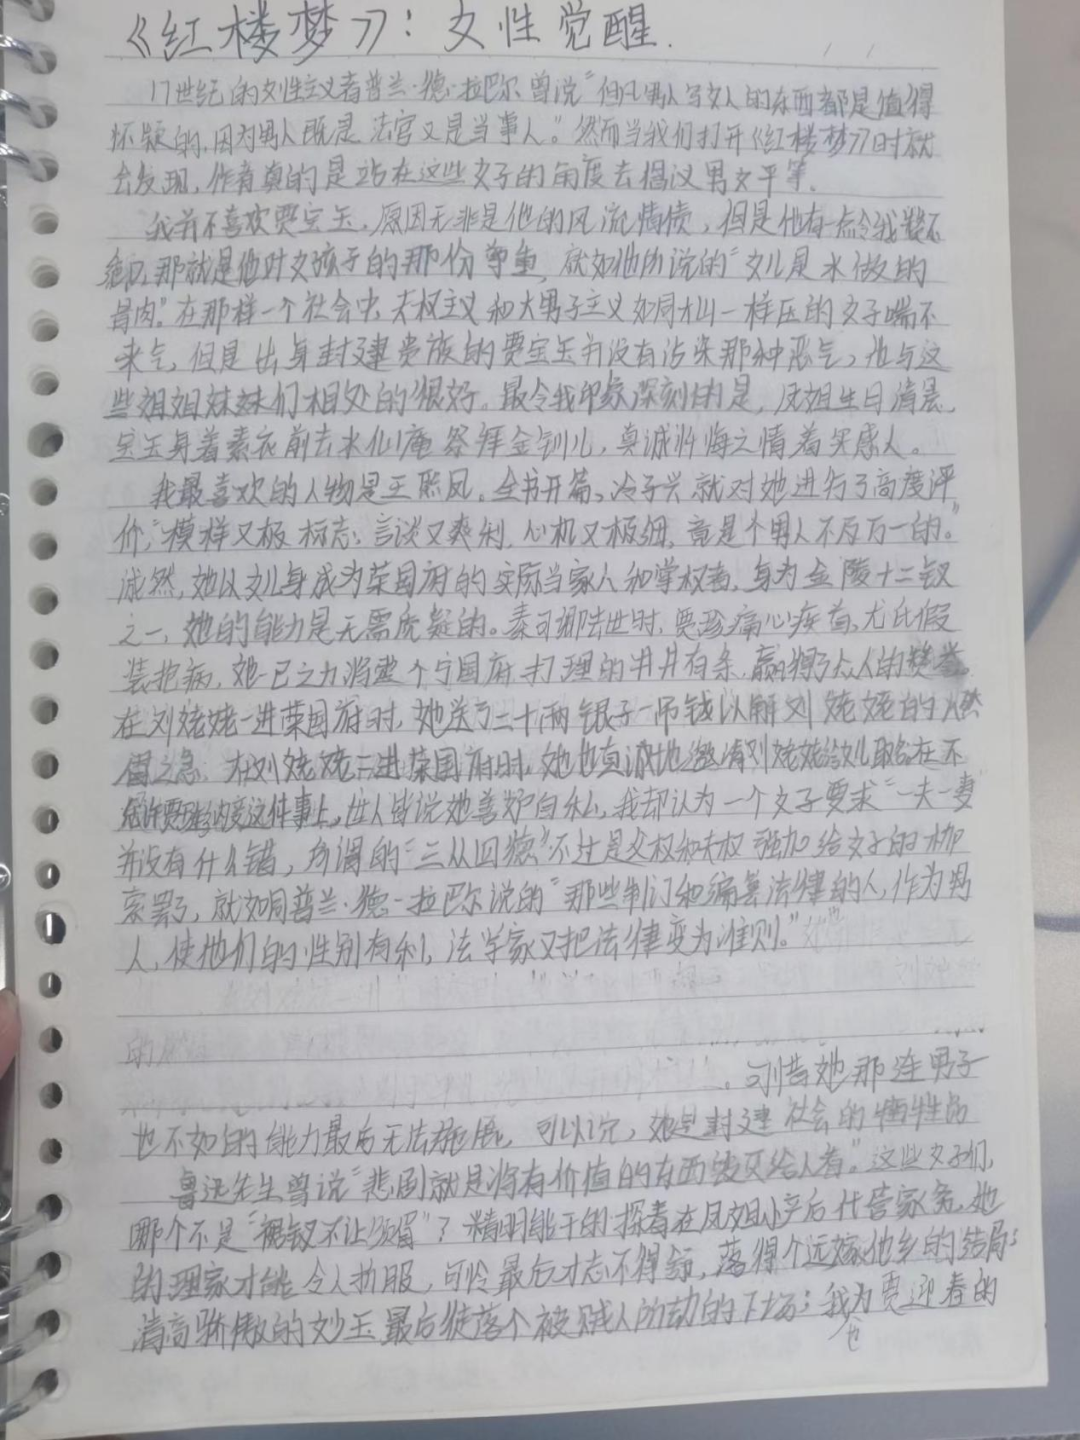 《红楼梦》：女性觉醒.
17世纪的女性主义者普兰·德·拉巴尔曾说"但凡男人写女人的东西都是值得
怀疑的,因为男人既是法官又是当事人。"然而当我们打开《红楼梦》时就
会发现,作者真的是站在这些女子的角度去倡议男女平等.
我并不喜欢贾宝玉,原因无非是他的风流情债,但是他有一点令我赞不
绝口,那就是他对女孩子的那份尊重,就如他所说的"女儿是水做的
骨肉."在那样一个社会中,夫权主义和大男子主义如同大山一样压的女子喘不
来气,但是出身封建贵族的贾宝玉并没有沾染那种恶气,他与这
些姐姐妹妹们相处的很好。最令我印象深刻的是,凤姐生日清晨,
宝玉身着素衣前去水仙庵祭拜金钏儿,真诚忏悔之情着实感人。
我最喜欢的人物是王熙凤。全书开篇,冷子兴就对她进行了高度评
价:"模样又极标志,言谈又爽利,心机又极细,竟是个男人不及万一的。"
诚然,她以女儿身成为荣国府的实际当家人和掌权者,身为金陵十二钗
之一,她的能力是无需质疑的。秦可卿去世时,贾珍痛心疾首,尤氏假
装抱病,她一己之力将整个宁国府打理的井井有条,赢得了众人的赞誉。
在刘姥姥一进荣国府时,她送了二十两银子一吊钱以解刘姥姥的燃
眉之急,在刘姥姥二进荣国府时,她也真诚地邀请刘姥姥给女儿取名在不
允许贾琏纳妾这件事上,世人皆说她善妒自私,我却认为一个女子要求"一夫一妻"
并没有什么错,所谓的"三从四德"不过是父权和夫权强加给女子的枷
索罢了,就如同普兰·德·拉巴尔说的"那些制订和编纂法律的人,作为男
人,使他们的性别有利,法学家又把法律变为准则."
的
,可惜她那连男子
也不如的能力最后无法施展,可以说,她是封建社会的牺牲品
鲁迅先生曾说"悲剧就是将有价值的东西毁灭给人看."这些女子们,
哪个不是"裙钗不让须眉"?精明能干的探春在凤姐小产后代管家务,她
的理家才能令人折服,可怜最后才志不得舒,落得个远嫁他乡的结局;
清高骄傲的妙玉最后徒落个被贼人所劫的下场;我也为贾迎春的